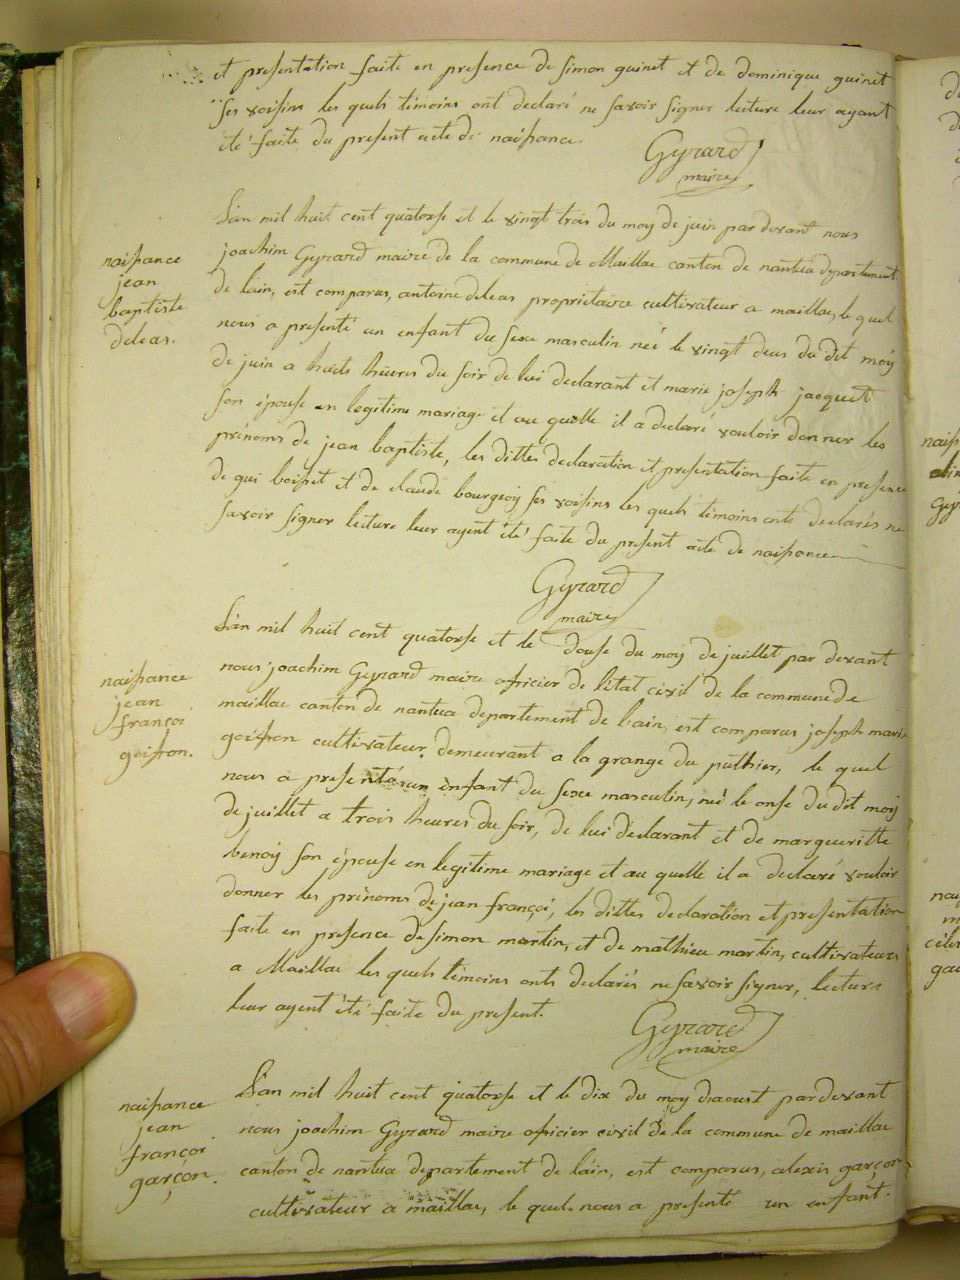 et presentation faite en presence de simon guinet et de dominique guinet
ses voisins les quels témoins ont declaré ne savoir signer lecture leur ayant
été faite du present acte de naissance
Gyrard
maire
L'an mil huit cent quatorse et le vingt trois du moy de juin par devant nous
joachim Gyrard maire de la commune de Maillac canton de nantua departement
de lain, est comparus, antoine deleas propriétaire cultivateur a maillac, le quel
nous a presenté un enfant du sexe masculin neé le vingt deus du dit moy
de juin a huits heures du soir de lui declarant et marie joseph jacquet
son épouse en legitime mariage et au quelle il a declaré vouloir donner les
prénoms de jean baptiste, les dittes declaration et presentation faite en presence
de gui boisset et de claude bourgeoy ses voisins les quels témoins onts declarés ne
savoir signer lecture leur ayent été faite du present acte de naissance
naissance
jean
baptiste
deleas.
Gyrard
maire
L'an mil huit cent quatorse et le douse du moy de juillet par devant
nous joachim Gyrard maire officier de l'état civil de la commune de
maillac canton de nantua departement de lain, est comparus joseph marie
goiffon cultivateur demeurant a la grange du puthier, le quel
nous a presenté un enfant du sexe masculin, neé le onse du dit moy
de juillet a trois heures du soir, de lui declarant et de margueritte
benoy son épouse en legitime mariage et au quelle il a declaré vouloir
donner les prénoms de jean françoi, les dittes declaration et presentation
faite en presence de simon martin, et de mathieu martin, cultivateurs
a Maillac les quels témoins onts declarés ne savoir signer, lecture
leur ayent été faite du present.
naissance
jean
françoi
goiffon.
Gyrard
maire
L'an mil huit cent quatorse et le dix du moy daoust par devant
nous joachim Gyrard maire officier civil de la commune de maillac
canton de nantua departement de lain, est comparus, alexis garçon
cultivateur a maillac, le quel nous a presenté un enfant
naissance
jean
françoi
garçon.